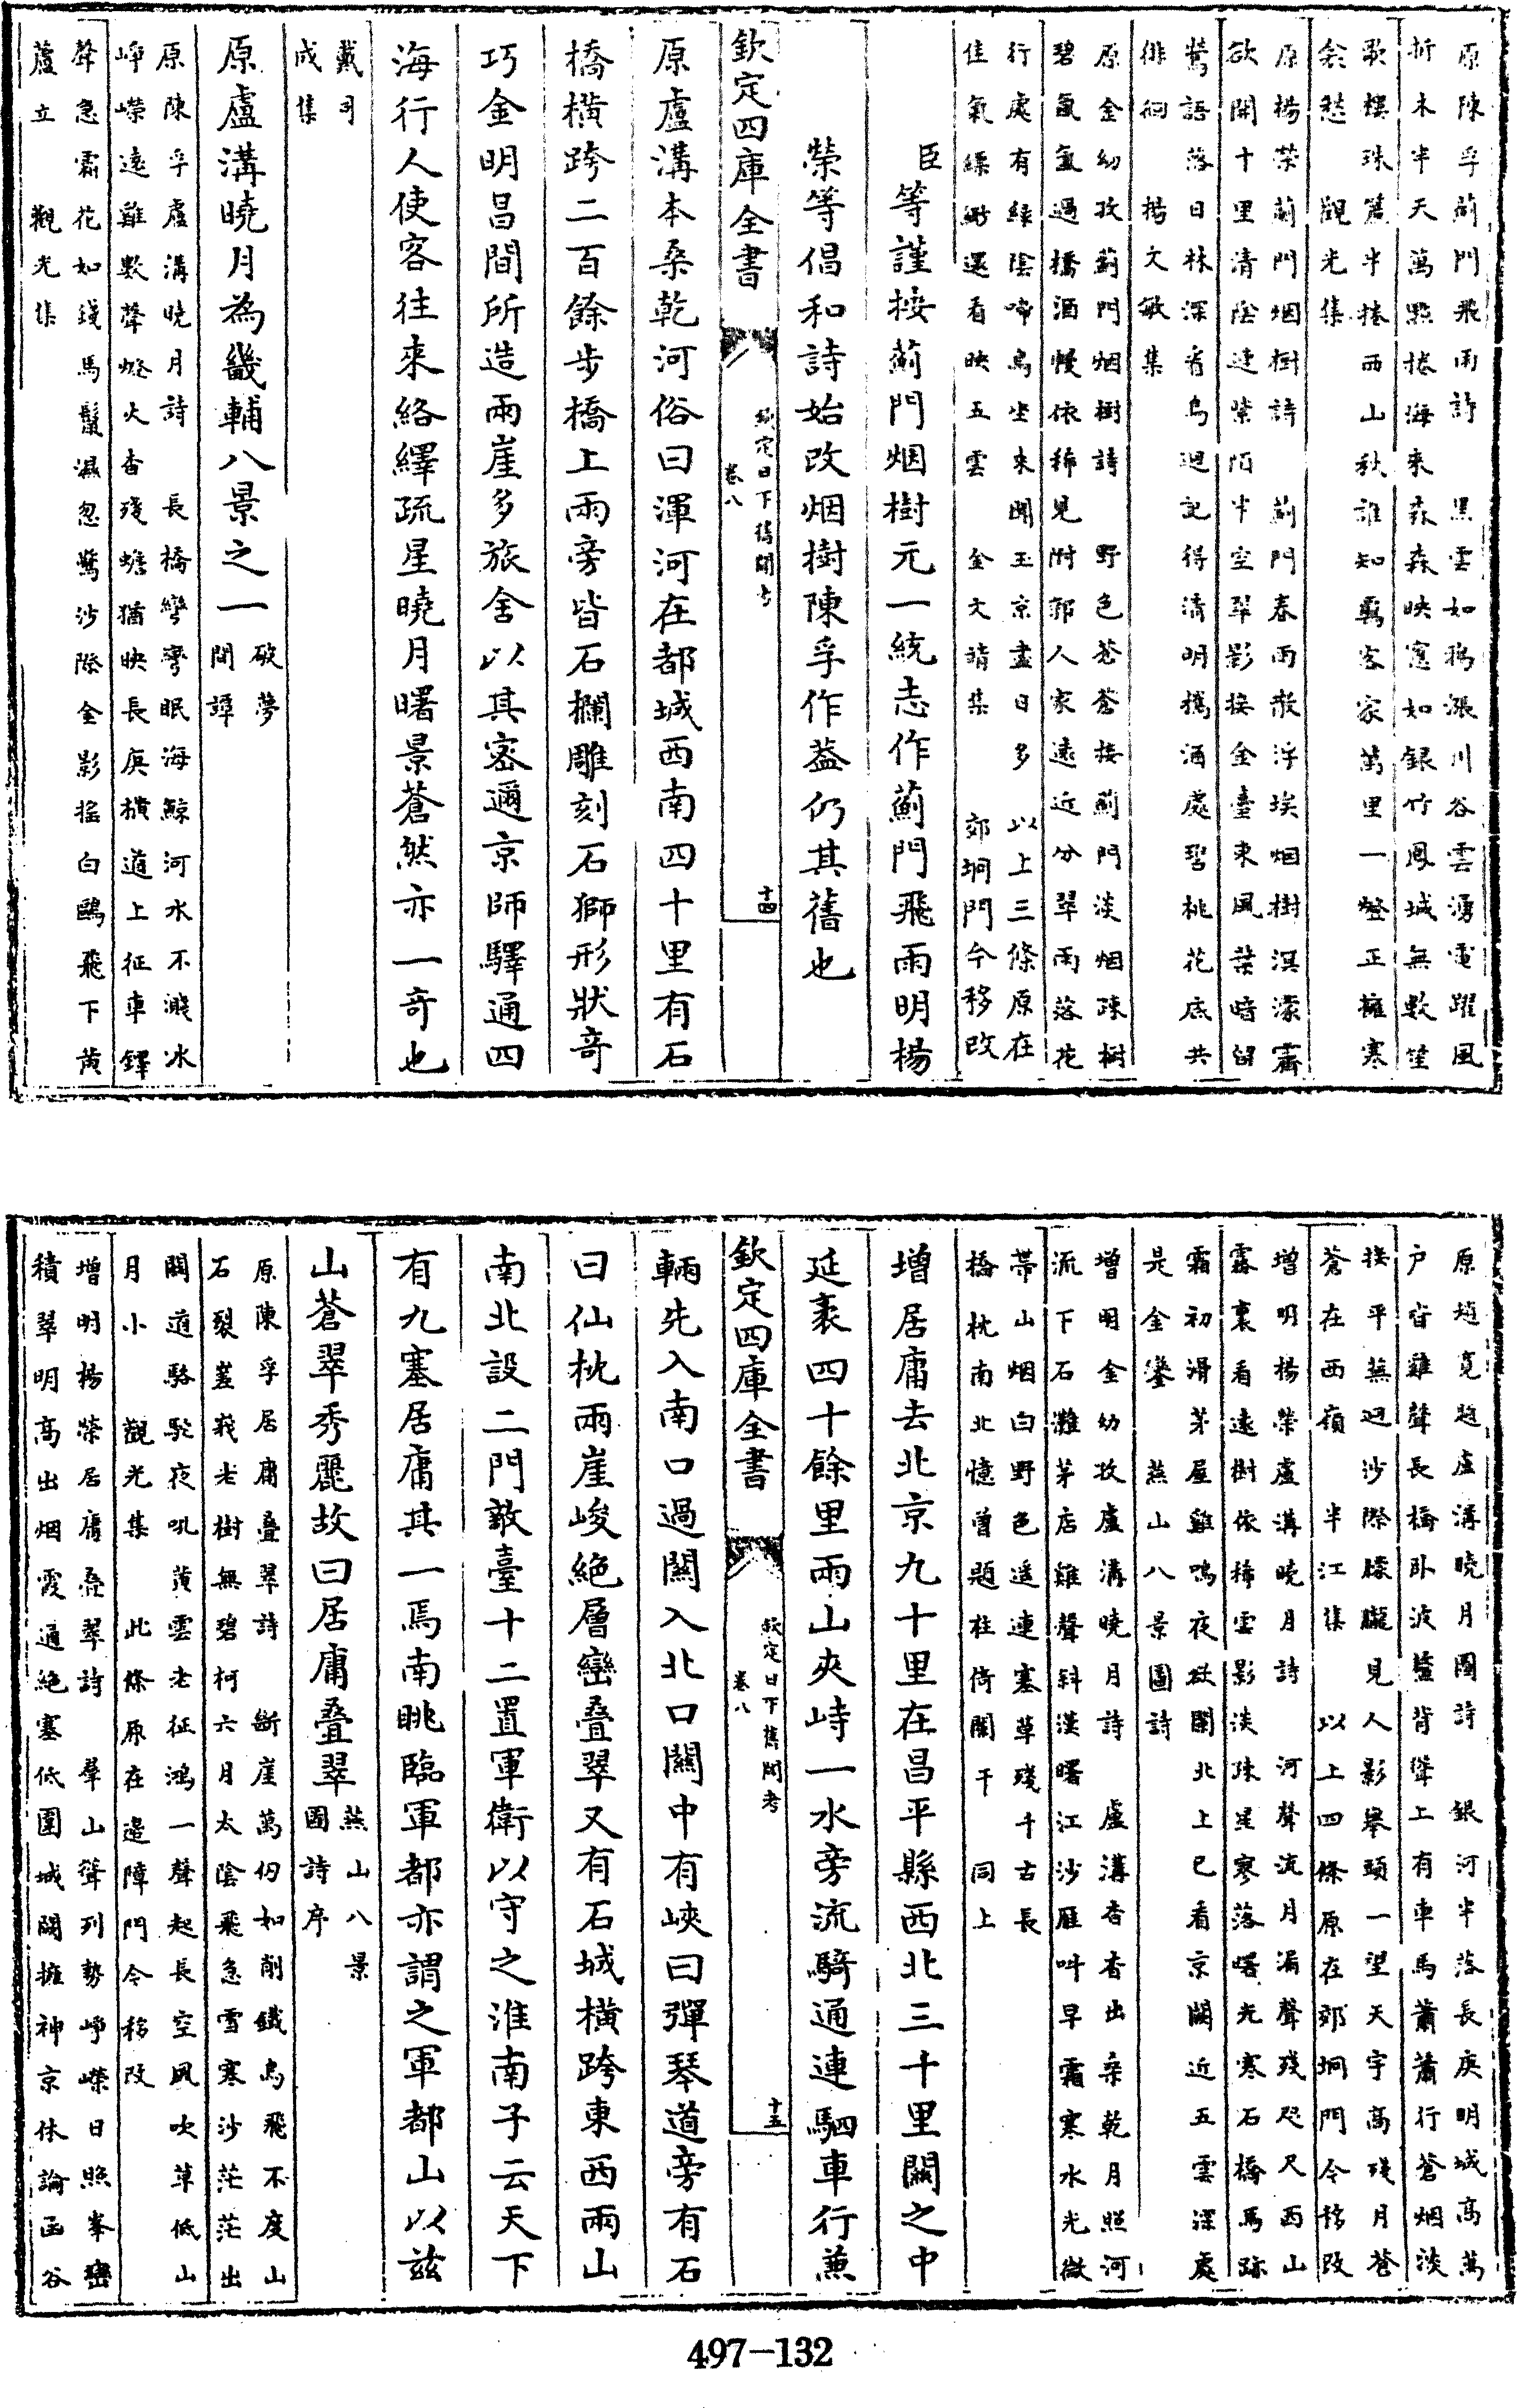 原陳孚薊門飛雨詩　黑雲如鴉漲川谷雲湧電躍風
折木半天萬點捲海來森森映窻如銀竹鳳城無數笙
歌樓珠簾半捲西山秋誰知羈客家萬里一燈正擁寒
衾愁　觀光集
原楊榮薊門烟樹詩　薊門春雨散浮埃烟樹溟濛霽
欲開十里清陰連紫陌半空翠影接金臺東風葉暗留
鶯語落日林深看鳥迴記得清明攜酒處碧桃花底共
徘徊　楊文敏集
原金幼孜薊門烟樹詩　野色蒼蒼接薊門淡烟疎樹
碧氤氲過橋酒幔依稀見附郭人家遠近分翠雨落花
行處有綠陰啼鳥坐來聞玉京盡日多
佳氣縹緲還看映五雲　金文靖集
以上三條原在
郊坰門今移改
臣等謹按薊門烟樹元一統志作薊門飛雨明楊
榮等倡和詩始改烟樹陳孚作葢仍其舊也
欽定四庫全書
欽定日下舊聞考
卷八
十四
原盧溝本桑乾河俗曰渾河在都城西南四十里有石
橋横跨二百餘步橋上兩旁皆石欄雕刻石獅形狀竒
巧金明昌間所造兩崖多旅舍以其密邇京師驛通四
海行人使客往來絡繹疏星曉月曙景蒼然亦一竒也
戴司
成集
原盧溝曉月為畿輔八景之一
破夢
間譚
原陳孚盧溝曉月詩　長橋彎彎眠海鯨河水不濺冰
崢嶸遠雞數聲燈火杳殘蟾猶映長庚横道上征車鐸
聲急霜花如錢馬鬣濕忽驚沙際金影摇白鷗飛下黄
蘆立　觀光集
原趙寛題盧溝曉月圖詩　銀河半落長庚明城高萬
户皆雞聲長橋卧波鼇背聳上有車馬蕭蕭行蒼烟淡
接平蕪迥沙際朦朧見人影舉頭一望天宇高殘月蒼
蒼在西嶺　半江集
以上四條原在郊坰門今移改
增明楊榮盧溝曉月詩　河聲流月漏聲殘咫尺西山
霧裏看遠樹依稀雲影淡疎星寥落曙光寒石橋馬跡
霜初滑茅屋雞鳴夜欲闌北上已看京闕近五雲深處
是金鑾　燕山八景圖詩
增明金幼孜盧溝曉月詩　盧溝杳杳出桑乾月照河
流下石灘茅店雞聲斜漢曙江沙雁叫早霜寒水光微
帶山烟白野色遥連塞草殘千古長
橋枕南北憶曾題柱倚闌干　同上
增居庸去北京九十里在昌平縣西北三十里關之中
延袤四十餘里兩山夾峙一水旁流騎通連駟車行兼
欽定四庫全書
欽定日下舊聞考
卷八
十五
輛先入南口過關入北口關中有峽曰彈琴道旁有石
曰仙枕兩崖峻絶層巒叠翠又有石城横跨東西兩山
南北設二門敵臺十二置軍衛以守之淮南子云天下
有九塞居庸其一焉南眺臨軍都亦謂之軍都山以兹
山蒼翠秀麗故曰居庸叠翠
燕山八景
圖詩序
原陳孚居庸叠翠詩　斷崖萬仞如削鐵鳥飛不度山
石裂嵳峩老樹無碧柯六月太陰飛急雪寒沙茫茫出
關道駱駝夜吼黄雲老征鴻一聲起長空風吹草低山
月小　觀光集　此條原在邊障門今移改
增明楊榮居庸叠翠詩　羣山聳列勢崢嶸日照峯巒
積翠明高出烟霞通絶塞低圍城闕擁神京休論函谷
497—132